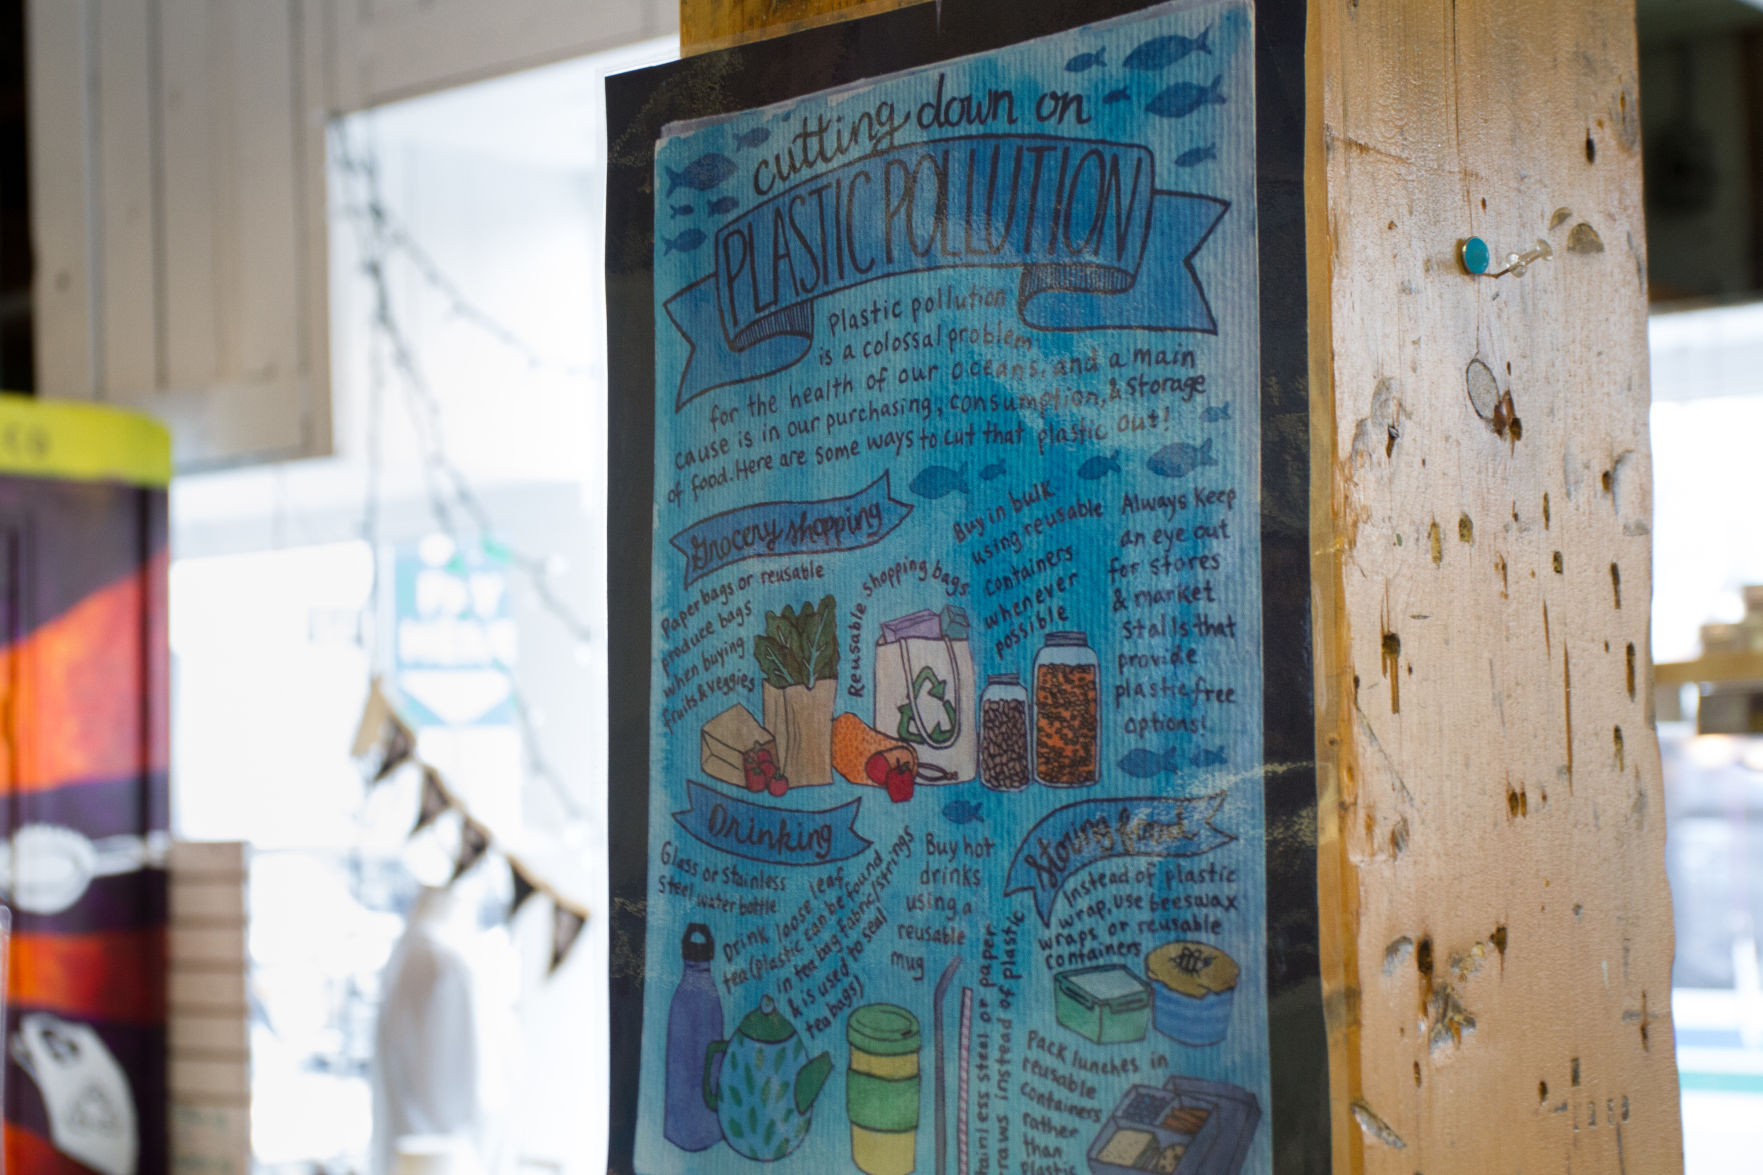 cutting down on
PLASTIC POLLUTION
Plastic pollution
is a colossal problem
for the health of our oceans, and a main
cause is in our purchasing, consumption, & storage
of food. Here are some ways to cut that plastic out!
Grocery shopping
Paper bags or reusable
produce bags
when buying
fruits & veggies
Reusable shopping bags
Buy in bulk
using reusable
containers
whenever
possible
Always keep
an eye out
for stores
& market
stalls that
provide
plastic free
options!
Drinking
Glass or stainless
steel water bottle
Drink loose leaf
tea (plastic can be found
in tea bag fabric/strings
& is used to seal
tea bags)
Buy hot
drinks
using a
reusable
mug
tainless steel or paper
raws instead of plastic
Storing food
Instead of plastic
wrap, use beeswax
wraps or reusable
containers
Pack lunches in
reusable
containers
rather
than
plastic